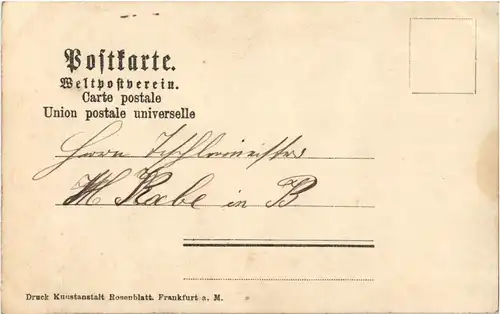 Postkarte.
Weltpostverein.
Carte postale
Union postale universelle
Herrn Tischlermeister
W Rabe in B
Druck Kunstanstalt Rosenblatt. Frankfurt a. M.